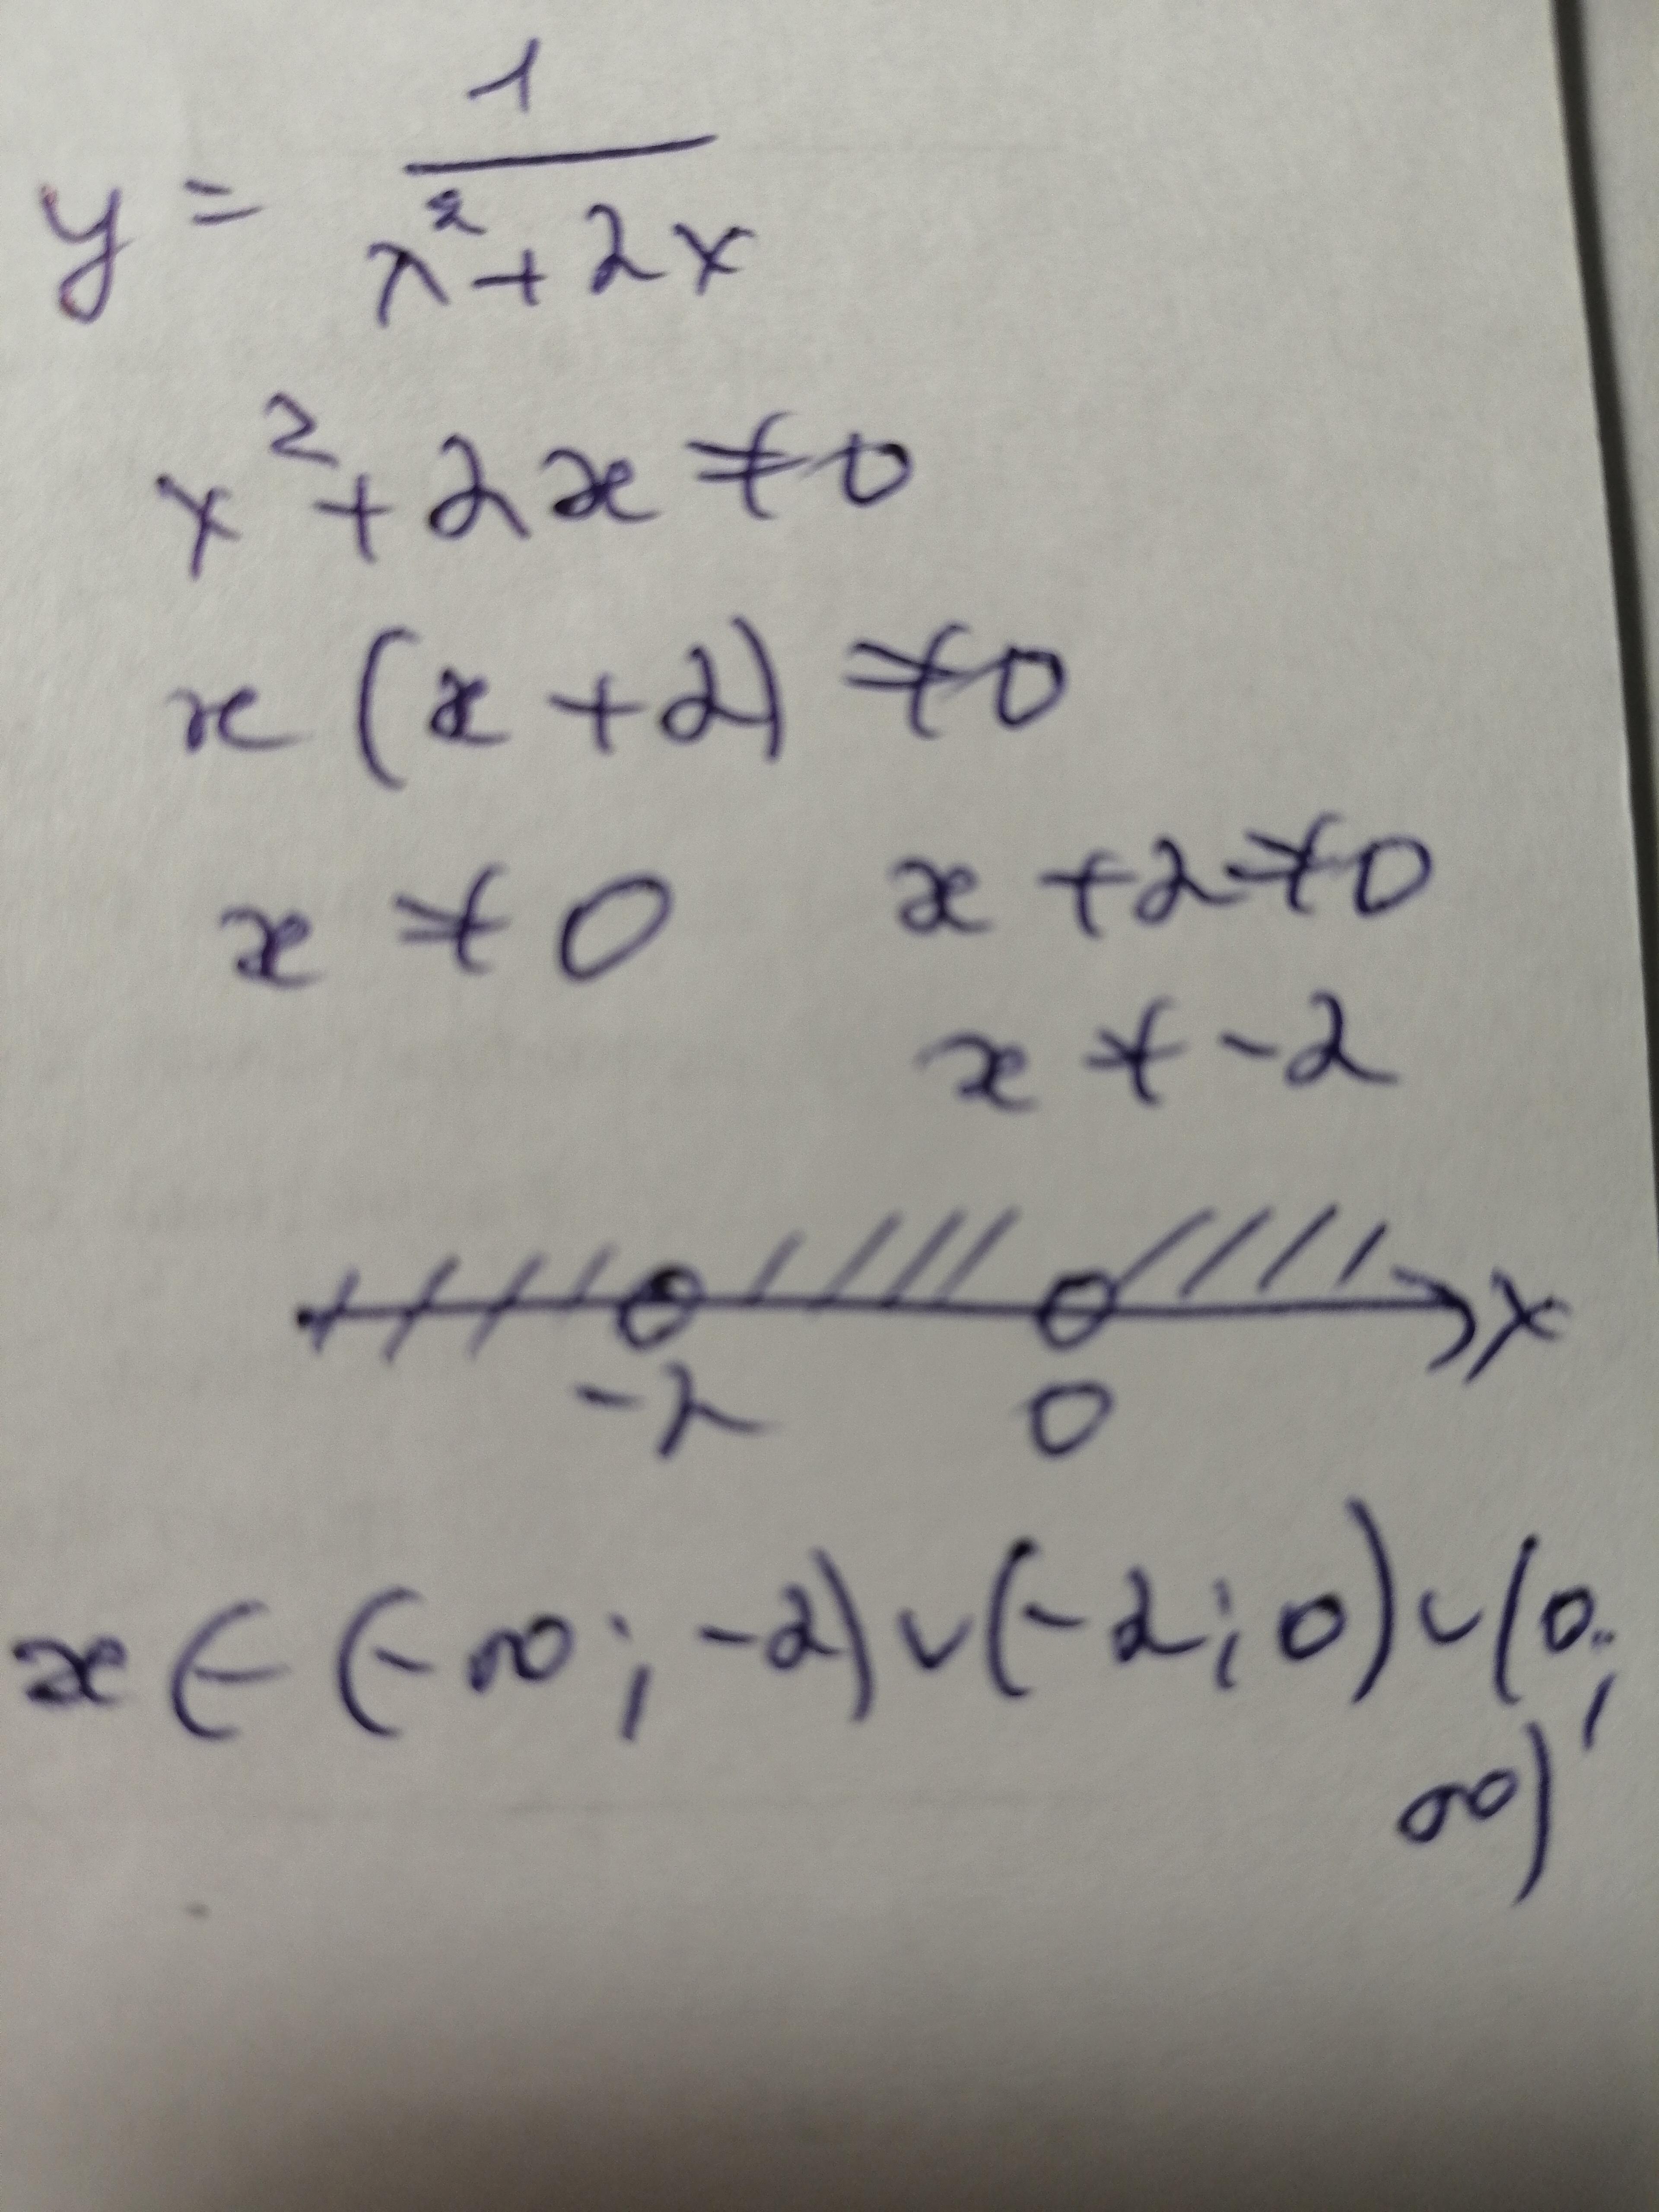 y = 1/(x²+2x)
x²+2x≠0
x(x+2)≠0
x≠0 x+2≠0
x≠-2
x
-2 0
x∈(-∞;-2)∪(-2;0)∪(0;
∞)